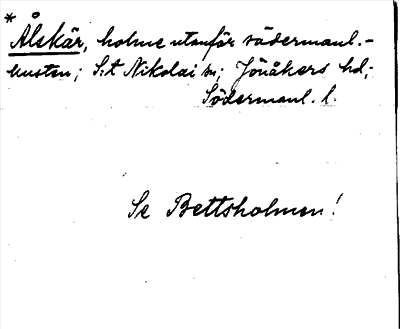 *
Ålskär, holme utanför södermanl.-
kusten; S:t Nikolai sn; Jönåkers hd;
Södermanl. l.
Se Bettsholmen!